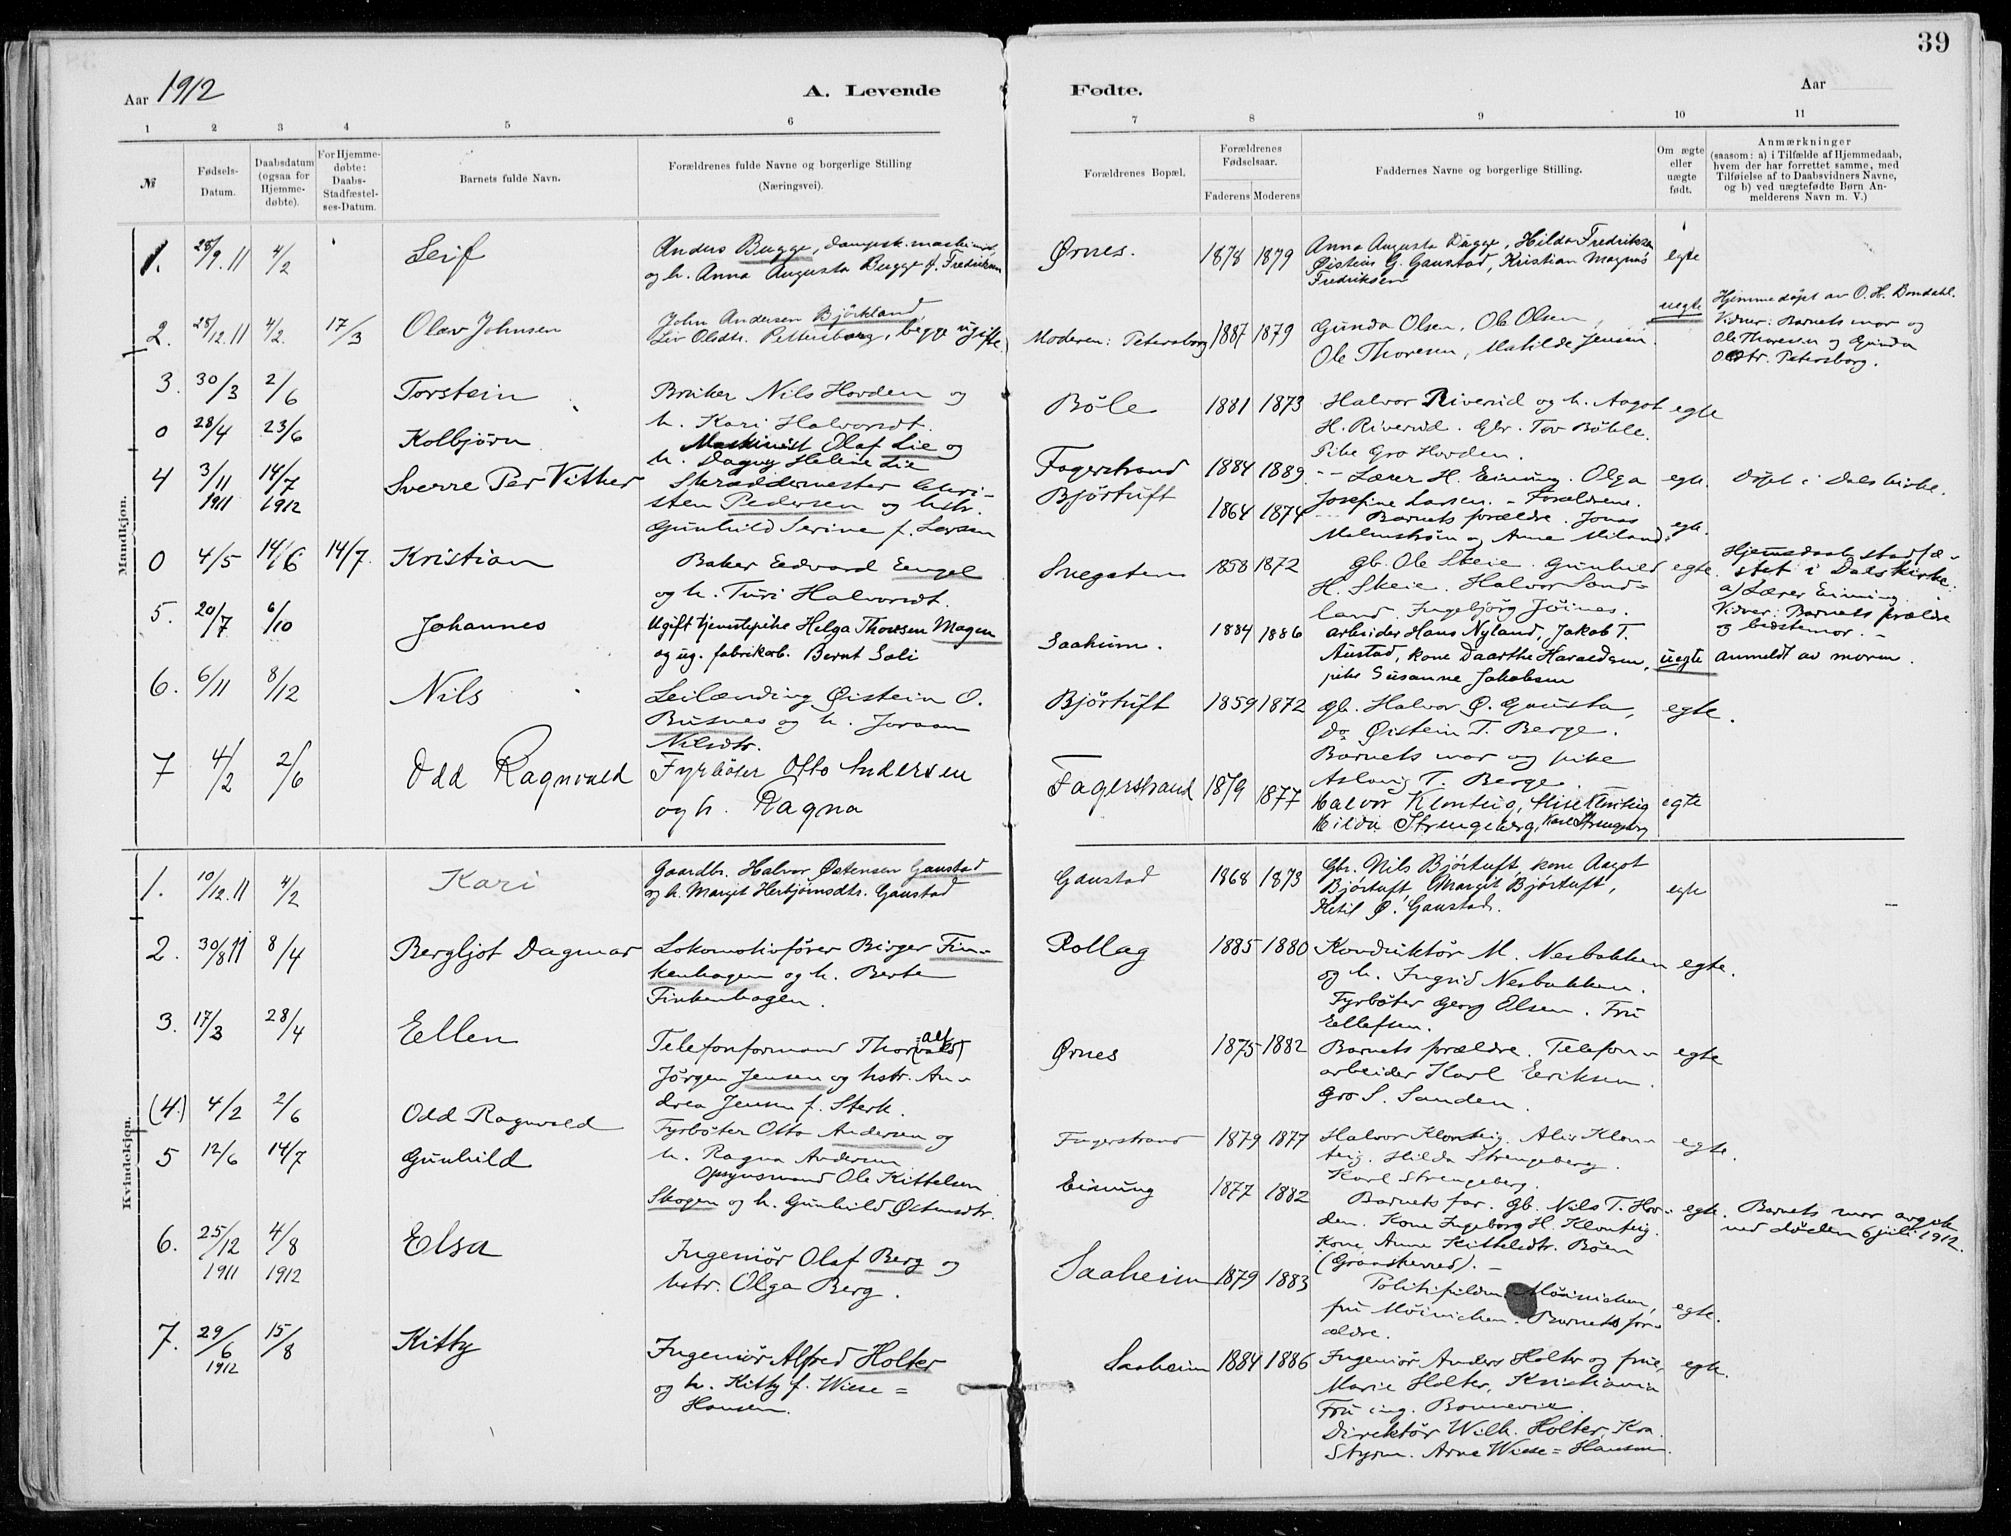 39
Aar 1912
A. Levende
Fødte.
Aar
1
2
3
4
5
6
7
8
9
10
11
№
Fødsels-
Datum.
Daabsdatum
(ogsaa for
Hjemme-
døbte).
For Hjemme-
døbte:
Daabs-
Stadfæstel-
ses-Datum.
Barnets fulde Navn.
Forældrenes fulde Navne og borgerlige Stilling
(Næringsvei).
Forældrenes Bopæl.
Forældrenes
Fødselsaar.
Faderens
Moderens
Faddernes Navne og borgerlige Stilling.
Om ægte
eller
uægte
født.
Anmærkninger
(saasom: a) i Tilfælde af Hjemmedaab,
hvem der har forrettet samme, med
Tilføielse af to Daabsvidners Navne,
og b) ved uægtefødte Børn An-
melderens Navn m. V.)
Mandkjøn.
1. 28/9.11 4/2 Leif
Anders Bugge, dampsk. maskinist
og h. Anna Augusta Bugge f. Fredriksen
Ørnes. 1878 1879
Anna Augusta Bugge, Hilda Fredriksen
Øistein G. Gaustad, Kristian Magnus
Fredriksen
egte
2. 28/12.11 4/2. 17/3 Olav Johnsen
John Andersen Björkland,
Liv Olsdtr. Pettersborg, begge ugifte.
Moderen: Petersborg 1887 1879
Gunda Olsen, Ole Olsen,
Ole Thoresen, Matilde Jensen.
uegte
Hjemmedøpt av O. H. Bondahl.
Vidner: Barnets mor og
Ole Thoresen og Gunda
Olsdtr. Petersborg.
3. 30/3 2/6 Torstein
Bruker Nils Hovden og
h. Kari Halvorsdt.
Böle 1881 1873
Halvor Riverud og h. Aagot
H. Riverud. Gbr. Tov Böhle.
Pike Gro Hovden.
egte
0 28/4 23/6 Kolbjørn
Maskinist Olaf Lie og
h. Dagny Helene Lie
Fagerstrand 1884 1889
Lærer H. Einung. Olga
Josefine Larsen. - Forældrene.
egte. Döpt i Dals kirke.
4 3/11 1911 14/7 1912 Sverre Per Vither
Skræddermester Chri-
sten Pedersen og hstr.
Gunhild Serine f. Larsen
Bjørtuft 1864 1874
Barnets forældre. Jonas
Malmstrøm og Anne Miland.
egte.
0 4/5 14/6 14/7. Kristian
Baker Edvard Engel
og h. Turi Halvorsdt.
1858 1872
gb. Ole Skeie. Gunhild
H. Skeie. Halvor Sand-
land. Ingebjörg Jöines.
egte.
Hjemedaab stadfæ-
stet i Dals kirke.
a) Lærer Einung.
Vidner: Barnets forældre
og bedstemor. -
5. 20/7 6/10 Johannes
Ugift tjenestepike Helga Thorsen Mogen
og ug. fabrikarb. Bernt Soli
Saaheim. 1884 1886
arbeider Hans Nyland, Jakob T.
Austad, kone Daarthe Haraldsen,
pike Susanne Jakobsen
uegte anmeldt av moren.
6. 6/11 8/12 Nils
Leilænding Øistein O.
Busnes og h. Joraan
Nilsdtr.
Bjørtuft 1859 1872
gb. Halvor Ø. Gausta,
do Øistein T. Berge.
Barnets mor og pike
Aslaug T. Berge.
egte.
7 4/2 2/6 Odd Ragnvald
Fyrböter Otto Andersen
og h. Ragna
Fagerstrand 1879 1877
Halvor Klonteig, Alise Klonteig
Hilda Strengeberg, Karl Strengeberg
egte
Kvindekjøn.
1. 10/12.11 4/2 Kari
Gaardbr. Halvor Østensen Gaustad
og h. Margit Herbjørnsdtr. Gaustad
Gaustad 1868 1873
Gbr. Nils Bjørtuft, kone Aagot
Bjørtuft, Margit Bjørtuft,
Ketil Ø. Gaustad.
egte
2. 30/8 11 8/4 Bergljot Dagmar
Lokomotivfører Birger Fin-
kenhagen og h. Berte
Finkenhagen.
Rollag 1885 1880
Konduktør M. Nesbakken
og h. Ingrid Nesbakken.
Fyrböter Georg Olsen. Fru
Ellefsen.
egte.
3. 17/3 28/4 Ellen
Telefonformand Thor(vald)
Jörgen Jensen og hstr. An-
drea Jensen f. Sterk.
Ørnes 1875 1882
Barnets forældre. Telefon-
arbeider Karl Eriksen.
Gro S. Sanden.
egte
(4.) 4/2 2/6 Odd Ragnvald
Fyrböter Otto Andersen og
h. Ragna Andersen
Fagerstrand 1879 1877
Halvor Klonteig. Alis Klon-
teig. Hilda Strengeberg.
Karl Strengeberg.
egte.
5 12/6 14/7 Gunhild
Opsynsmand Ole Kittelsen
Skogen og h. Gunhild Östensdtr.
Einung 1877 1882
Barnets far. gb. Nils T. Hov-
den. Kone Ingeborg H. Klonteig.
Kone Anne Kittelsdtr. Böen
(Gransherred). -
egte. Barnets mor avgik
ved döden 6 juli 1912.
6. 25/12 1911 4/8 1912 Elsa
Ingeniör Olaf Berg og
hstr. Olga Berg.
Saaheim 1879 1883
Politifuldm. Möinichen,
fru Möinichen. Barnets for-
ældre.
egte.
7. 29/6 1912 15/8 Kitty
Ingeniör Alfred Holter
og h. Kitty f. Wiese=
Hansen.
Saaheim 1884 1886
Ingeniör Anders Holter og frue,
Marie Holter, Kristiania
Fru ing. Bonnevie.
Direktör Wilh. Holter, Kra.
Styrm. Arne Wiese=Hansen.
egte.